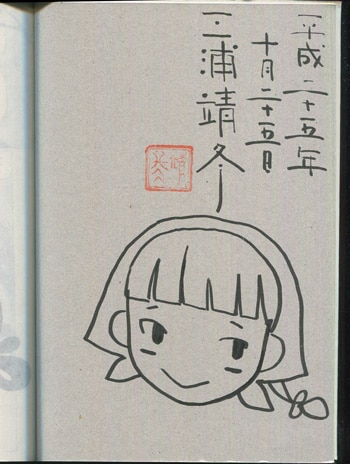 平成二十五年
十月二十五日
三浦靖冬